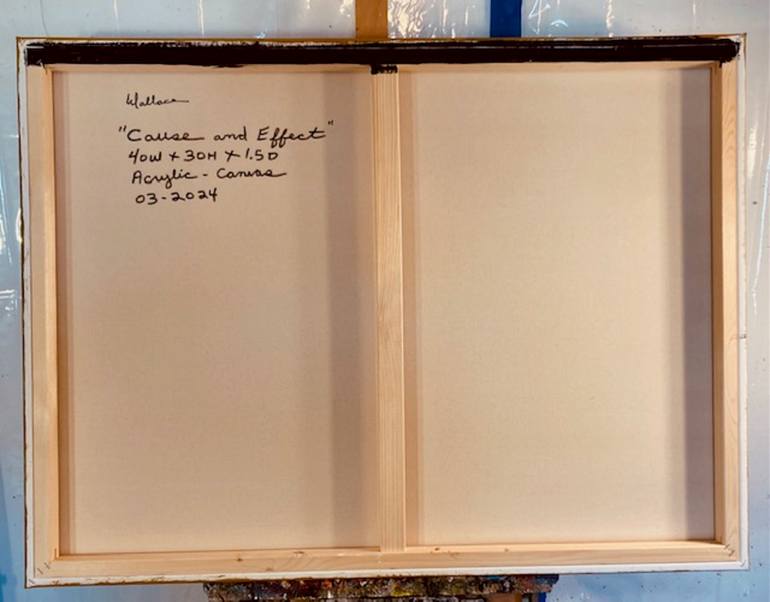 Wallace
"Cause and Effect"
40W x 30H x 1.5D
Acrylic - Canvas
03-2024